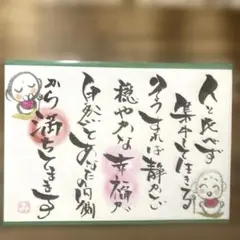 人と比べず
集中して生きる
そうすれば静かで
穏やかな幸福が
自然とあなたの内側
から満ちてきます